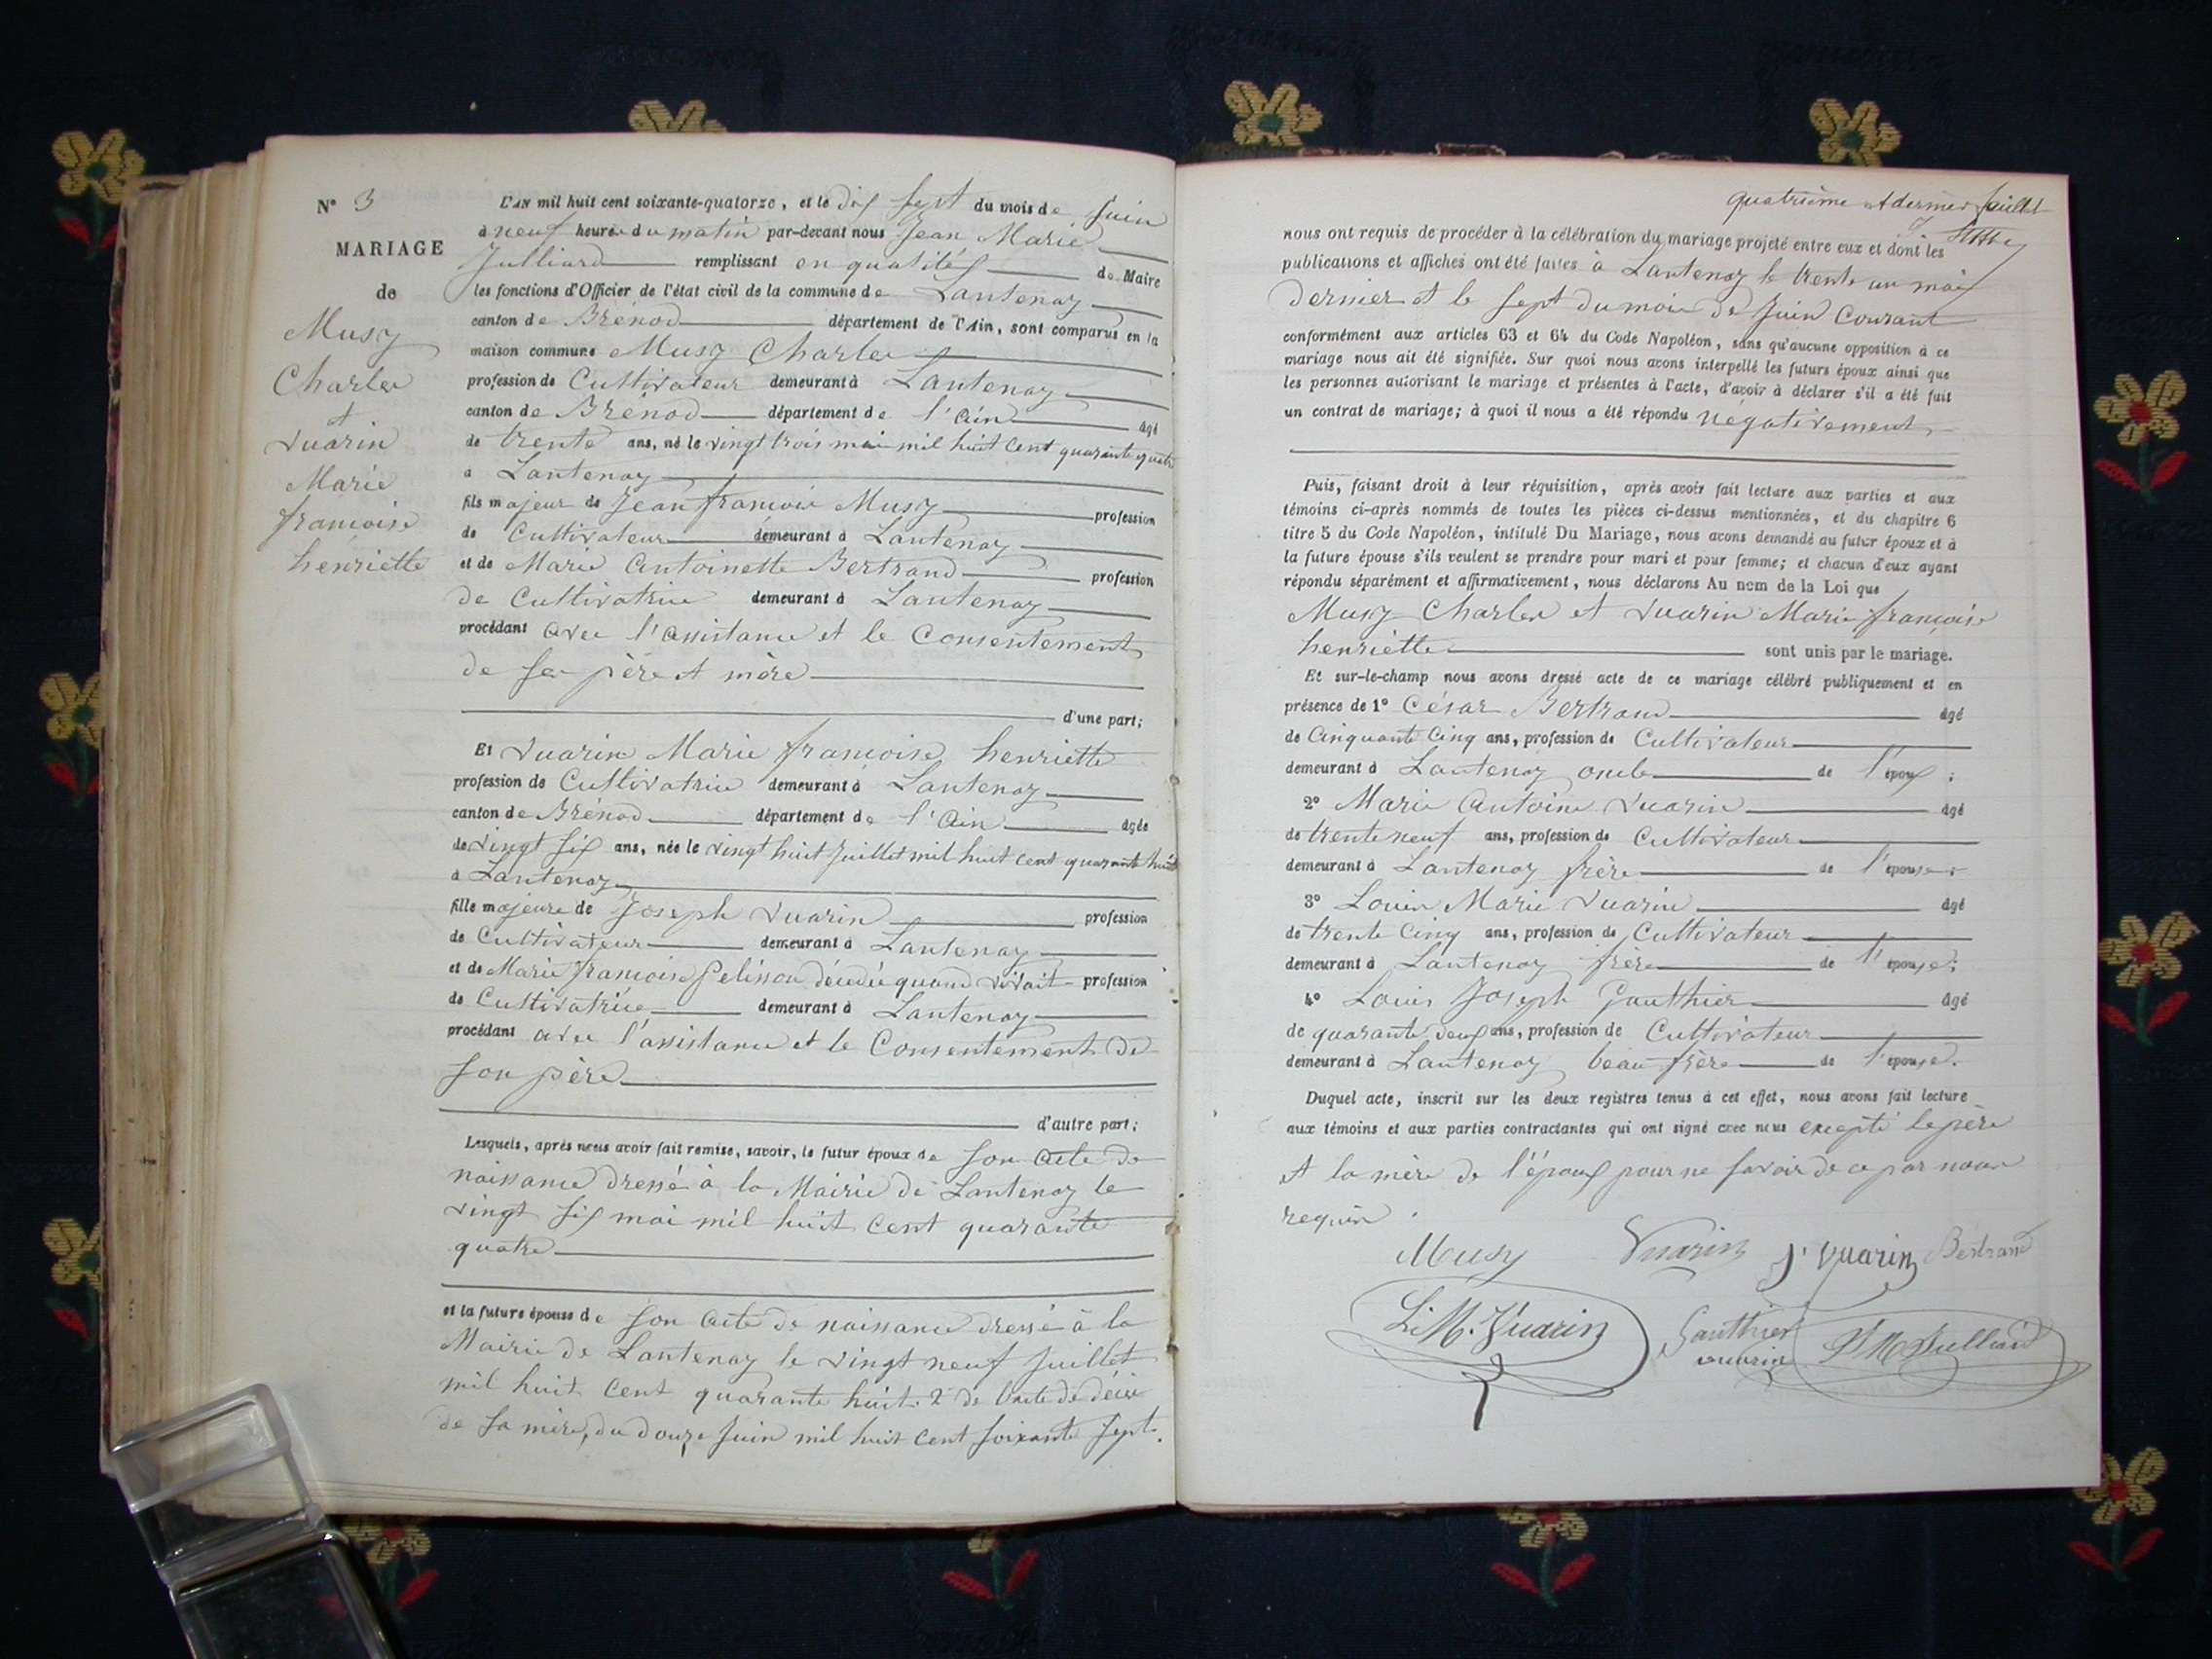 N° 3
MARIAGE
de
Musy
Charles
et
Vuarin
Marie
françoise
henriette
L'AN mil huit cent soixante-quatorze, et le dix sept du mois de Juin
à neuf heures du matin par-devant nous Jean Marie
Julliard remplissant en qualités de Maire
les fonctions d'Officier de l'état civil de la commune de Lantenay
canton de Brénod département de l'Ain, sont comparus en la
maison commune Musy Charles
profession de Cultivateur demeurant à Lantenay
canton de Brénod département de l'Ain âgé
de trente ans, né le vingt trois mai mil huit cent quarante quatre
a Lantenay
fils majeur de Jean françois Musy profession
de Cultivateur demeurant à Lantenay
et de Marie Antoinette Bertrand profession
de Cultivatrice demeurant à Lantenay
procédant avec l'assistance et le Consentement
de ses père et mère
d'une part;
Et Vuarin Marie françoise henriette
profession de Cultivatrice demeurant à Lantenay
canton de Brénod département de l'Ain âgée
de vingt six ans, née le vingt huit Juillet mil huit cent quarante huit
à Lantenay
fille majeure de Joseph Vuarin profession
de Cultivateur demeurant à Lantenay
et de Marie françoise Pelisson décédée quand vivait profession
de Cultivatrice demeurant à Lantenay
procédant avec l'assistance et le Consentement de
son père
d'autre part;
Lesquels, après nous avoir fait remise, savoir, le futur époux de son acte de
naissance dressé à la Mairie de Lantenay le
vingt six mai mil huit cent quarante
quatre
et la future épouse de son acte de naissance dressé à la
Mairie de Lantenay le vingt neuf Juillet
mil huit cent quarante huit. 2° de l'acte de décès
de sa mère, du douze Juin mil huit cent soixante sept.
quatrième et dernier feuillet
nous ont requis de procéder à la célébration du mariage projeté entre eux et dont les
publications et affiches ont été faites à Lantenay le trente un mai
dernier et le sept du mois de Juin Courant
conformément aux articles 63 et 64 du Code Napoléon, sans qu'aucune opposition à ce
mariage nous ait été signifiée. Sur quoi nous avons interpellé les futurs époux ainsi que
les personnes autorisant le mariage et présentes à l'acte, d'avoir à déclarer s'il a été fait
un contrat de mariage; à quoi il nous a été répondu négativement
Puis, faisant droit à leur réquisition, après avoir fait lecture aux parties et aux
témoins ci-après nommés de toutes les pièces ci-dessus mentionnées, et du chapitre 6
titre 5 du Code Napoléon, intitulé Du Mariage, nous avons demandé au futur époux et à
la future épouse s'ils veulent se prendre pour mari et pour femme; et chacun d'eux ayant
répondu séparément et affirmativement, nous déclarons Au nom de la Loi que
Musy Charles et Vuarin Marie françoise
henriette sont unis par le mariage.
Et sur-le-champ nous avons dressé acte de ce mariage célébré publiquement et en
présence de 1° César Bertrand âgé
de Cinquante Cinq ans, profession de Cultivateur
demeurant à Lantenay oncle de l'époux ;
2° Marie Antoine Vuarin âgé
de trente neuf ans, profession de Cultivateur
demeurant à Lantenay frère de l'épouse ;
3° Louis Marie Vuarin âgé
de trente Cinq ans, profession de Cultivateur
demeurant à Lantenay frère de l'épouse ;
4° Louis Joseph Gauthier âgé
de quarante deux ans, profession de Cultivateur
demeurant à Lantenay beau-frère de l'épouse.
Duquel acte, inscrit sur les deux registres tenus à cet effet, nous avons fait lecture
aux témoins et aux parties contractantes qui ont signé avec nous excepté le père
et la mère de l'époux pour ne savoir de ce par nous
requis.
Musy Vuarin J. Vuarin Bertrand
L. M. Vuarin Gauthier J M Julliard
vuarin